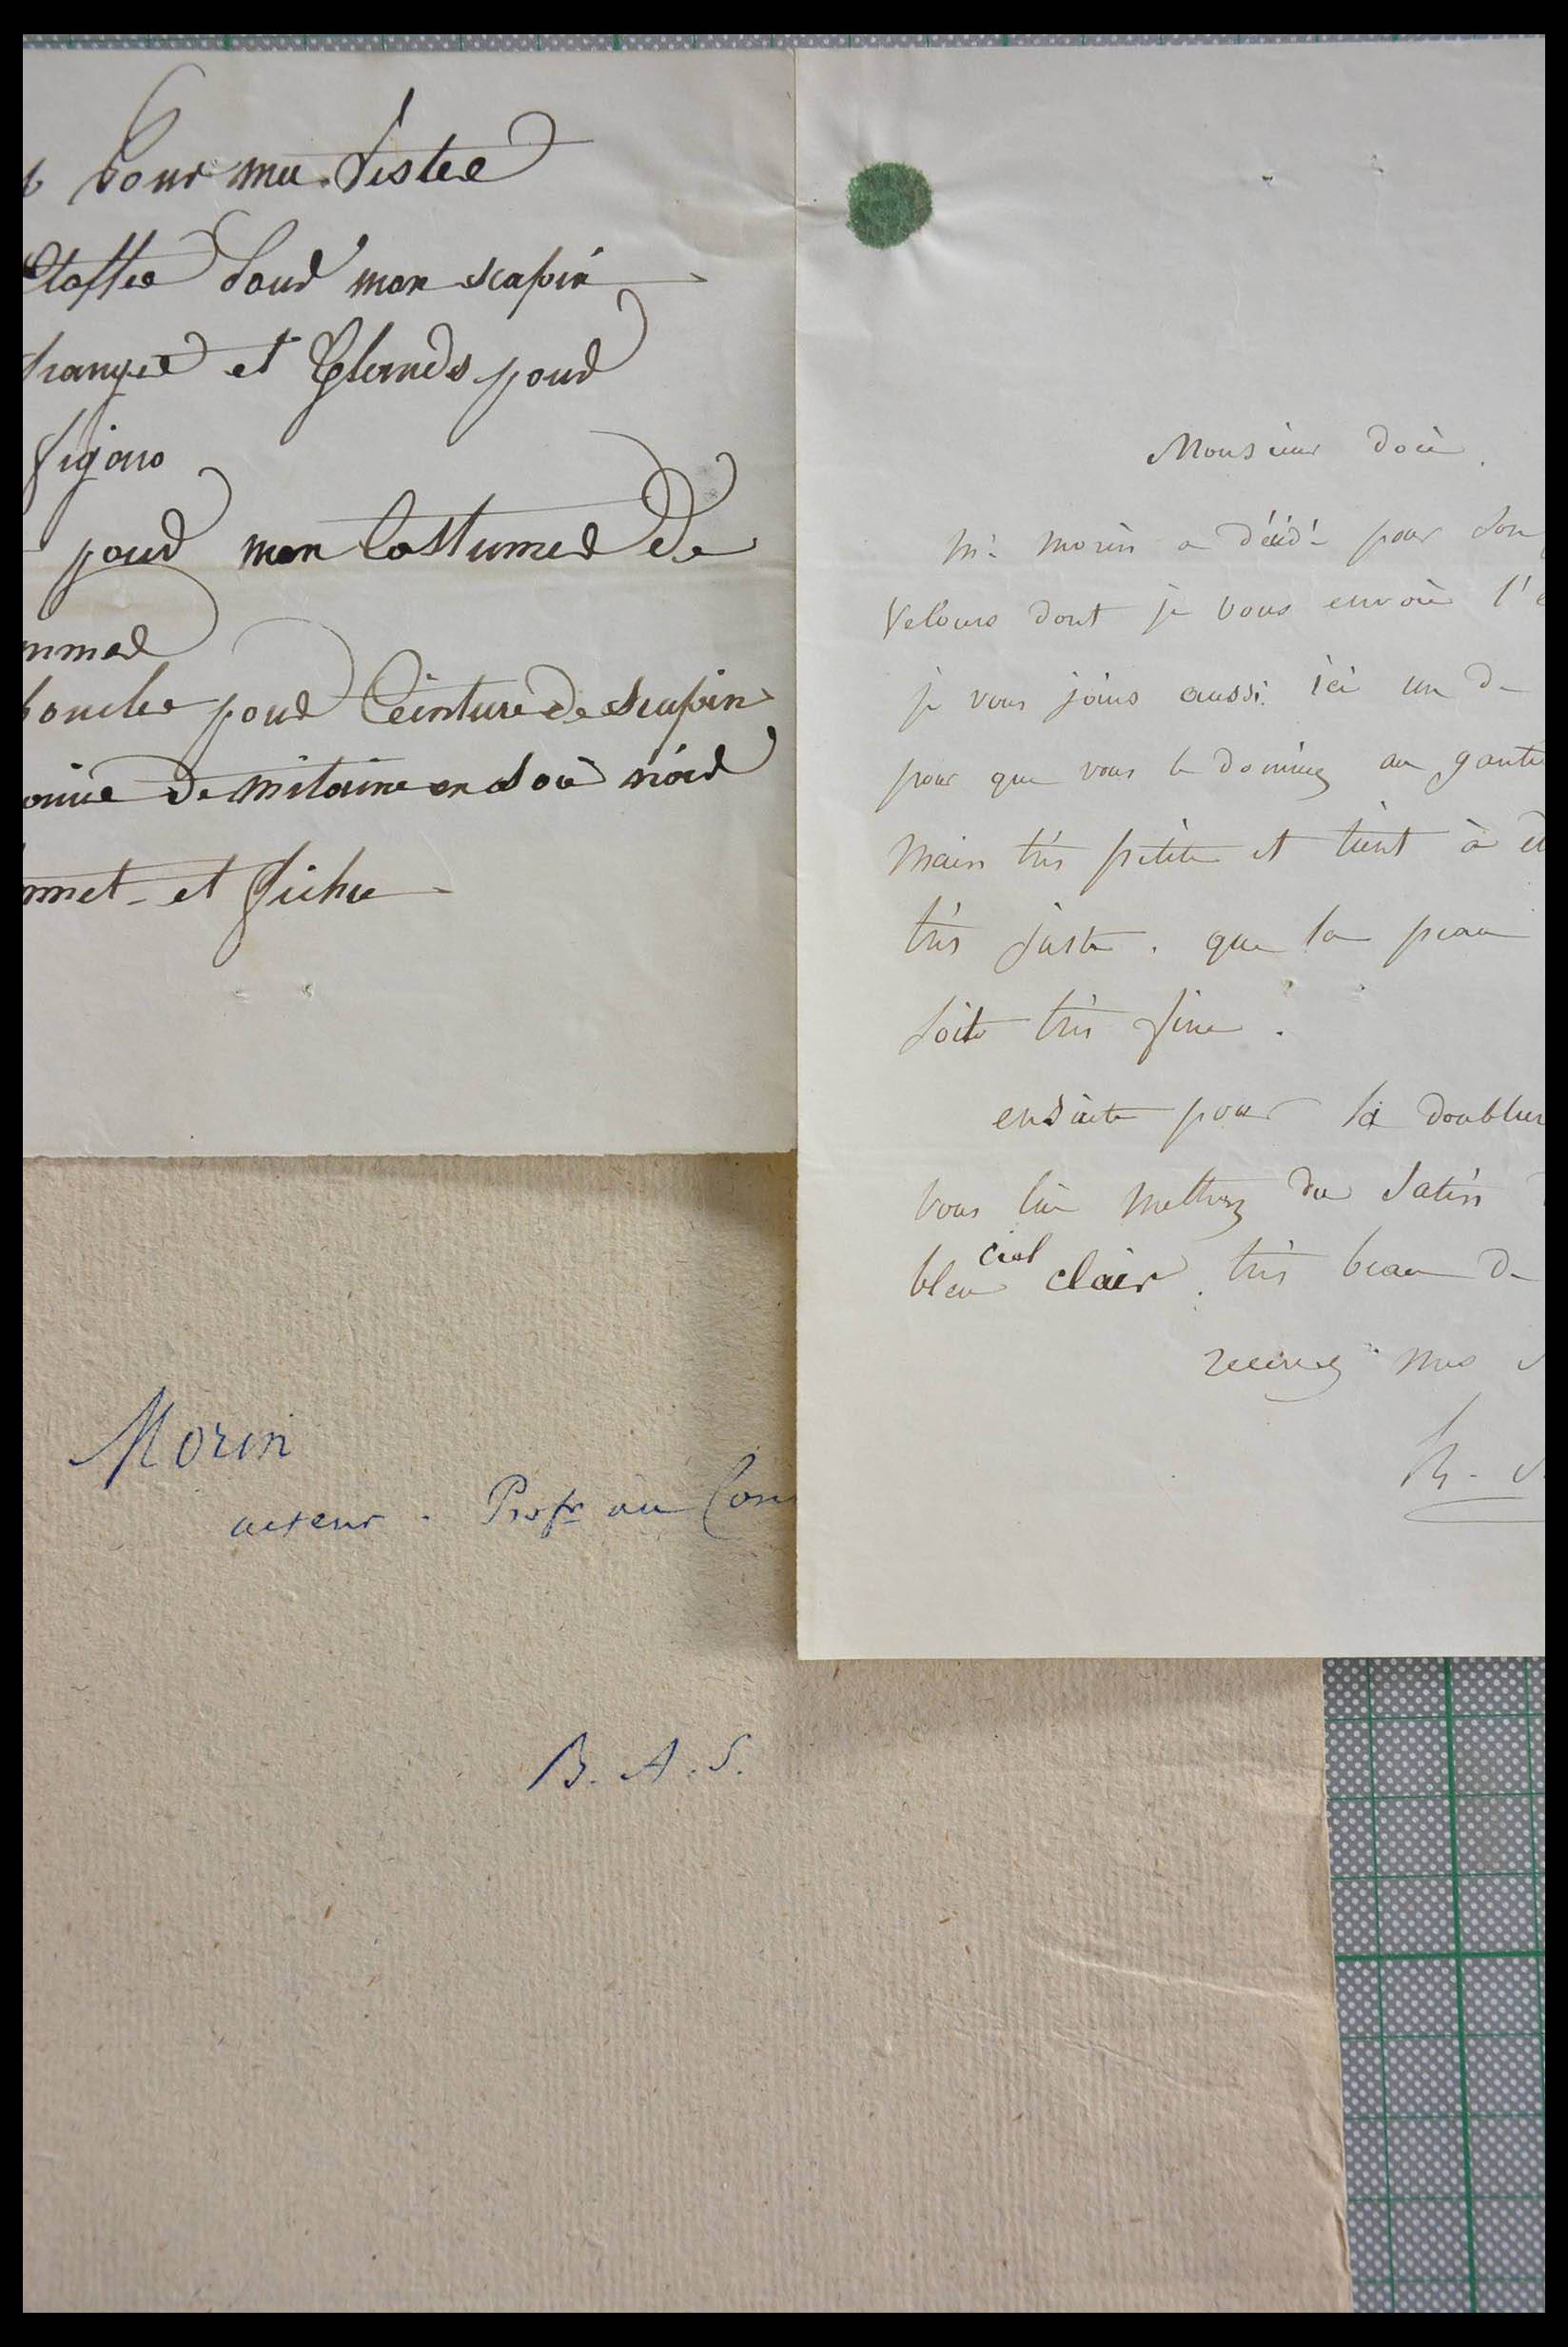 pour ma veste
étoffe pour mon scapin
frange et Glands pour
figaro
pour mon Costume de
boucle pour Ceinture de scapin
de mitaine en soie noir
et fichu
Monsieur doié
Mr morin a décidé pour son
velours dont je vous envoie l'é
je vous joins aussi ici un de
pour que vous le donniez au
main très petite et tient à
très juste. que la peau
soit très fine.
ensuite pour la doublur
vous lui mettrez du satin
ciel
bleu clair. très beau de
recevez mes
Morin
acteur. Profr au Con
B. A. S.